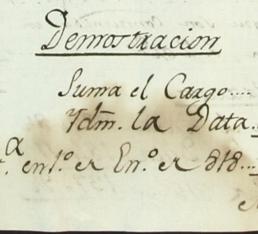 Demostracion
Suma el Cargo....
Ydm. la Data.
a en 1.º de En.º de 818...